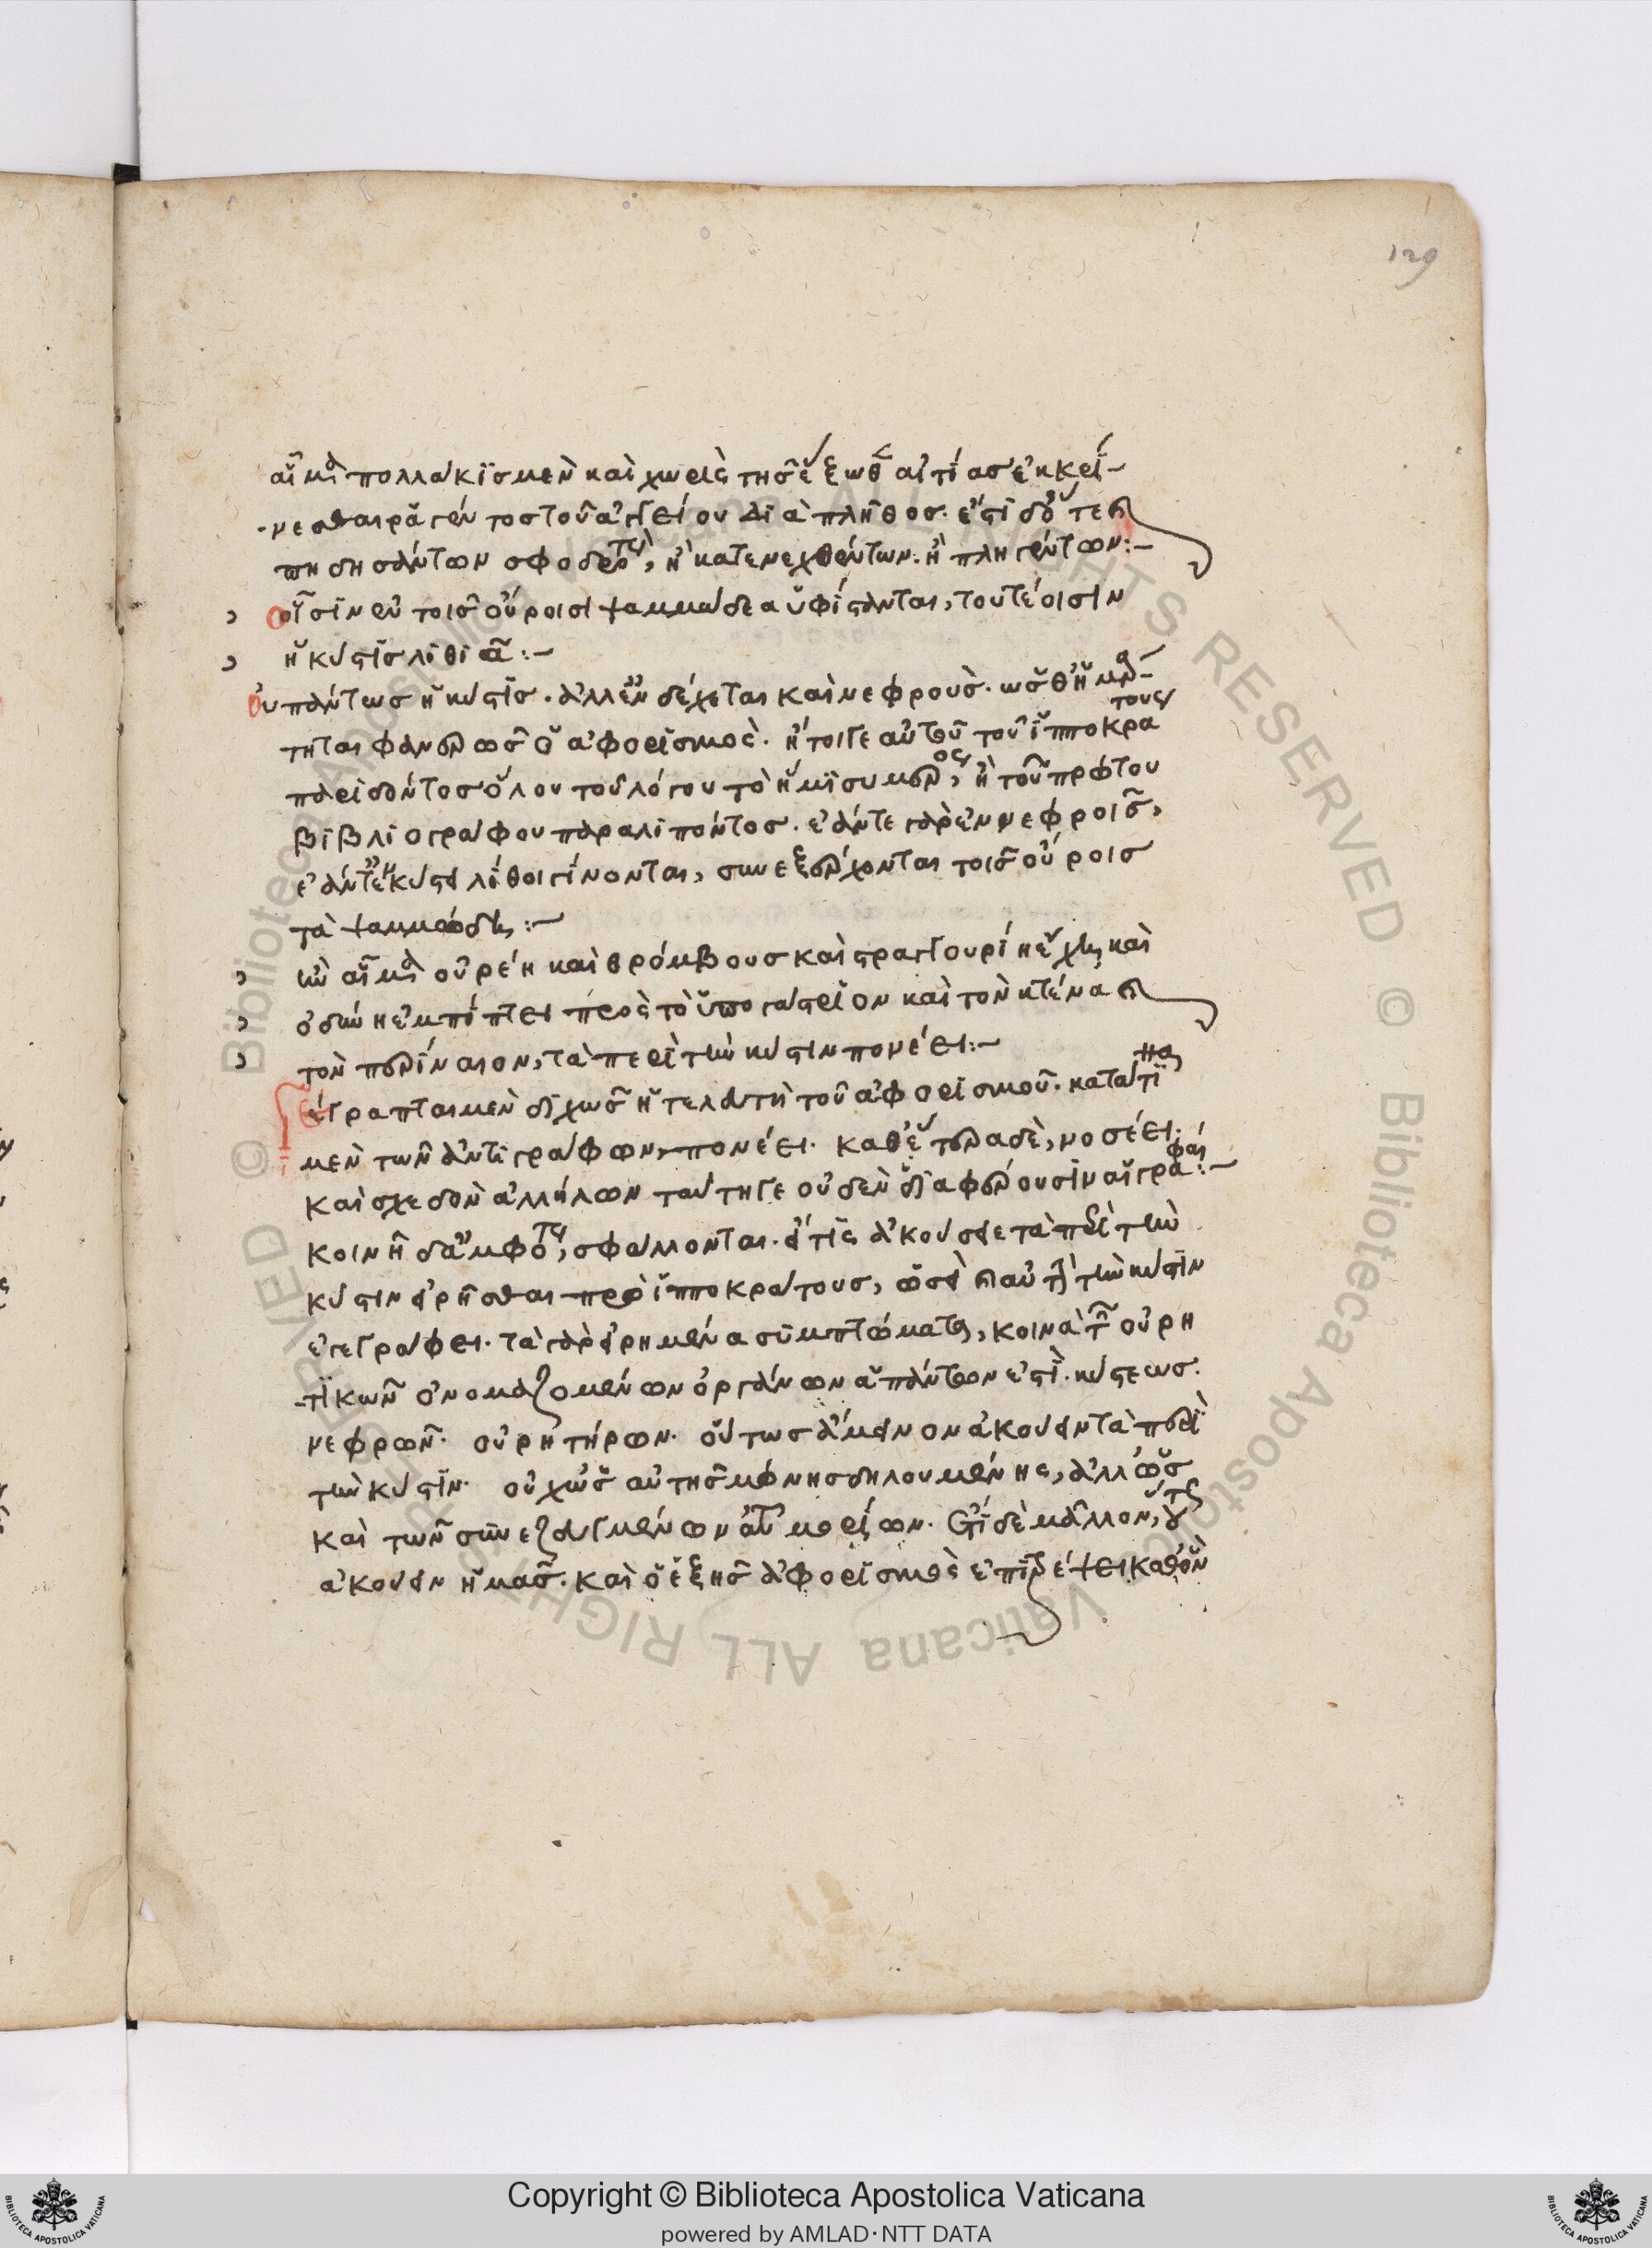 129
αἷμα πολλάκις μὲν καὶ χωρὶς τῆς ἔξωθεν αἰτίας ἐκκρί-
νεσθαι ῥαγέντος τοῦ ἀγγείου διὰ πλῆθος. ἔστι δ' ὅτε καὶ
πηδησάντων σφοδρότερον, ἢ κατενεχθέντων. ἢ πληγέντων:-
οἷσιν ἐν τοῖς οὔροισι ψαμμώδεα ὑφίσταται, τουτέοισιν
ἡ κύστις λιθιᾶ:-
οὐ πάντως ἡ κύστις. ἀλλ' ἐνδέχεται καὶ νεφρούς. ὥσθ' ἡμαρ-
τηται φανερῶς ὁ ἀφορισμός. ἤτοι γε αὐτοῦ τοῦ ἱπποκράτους
παριδόντος ὅλου τοῦ λόγου τὸ ἥμισυ μέρος, ἢ τοῦ πρώτου
βιβλιογράφου παραλιπόντος. ἐάν τε γὰρ ἐν νεφροῖς,
ἐάν τε ἐν κύστει λίθοι γίνονται, συνεξέρχονται τοῖς οὔροις
τὰ ψαμμώδη:-
ἢν αἷμα οὐρέῃ καὶ θρόμβους καὶ στραγγουρίη ἔχῃ καὶ
ὀδύνη ἐμπίπτει πρὸς τὸ ὑπογάστριον καὶ τὸν κτένα καὶ
τὸν περίναιον, τὰ περὶ τὴν κύστιν πονέει:-
γέγραπται μὲν διχῶς ἡ τελευτὴ τοῦ ἀφορισμοῦ. κατά τινα
μὲν τῶν ἀντιγράφων, πονέει. καθ' ἕτερα δὲ, νοσέει.
καὶ σχεδὸν ἀλλήλων ταύτῃ γε οὐδὲν διαφέρουσιν αἱ γραφαί:-
κοινῇ δ' ἀμφότεραι, σφάλλονται. εἴ τις ἀκούσειε τὰ περὶ τὴν
κύστιν εἰρῆσθαι πρὸς ἱπποκράτους, ὡς εἰ καὶ αὐτὴν τὴν κύστιν
ἐγεγράφει. τὰ γὰρ εἰρημένα συμπτώματα, κοινὰ τῶν οὐρη
τικῶν ὀνομαζομένων ὀργάνων ἁπάντων ἐστί. κύστεως.
νεφρῶν. οὐρητήρων. οὕτως ἄμεινον ἀκούειν τὰ περὶ
τὴν κύστιν. οὐχ ὡς αὐτῆς μόνης δηλουμένης, ἀλλ' ὡς
καὶ τῶν συνεζευγμένων αὐτῇ μορίων. ἔτι δὲ μᾶλλον, οὕτως
ἀκούειν ἡμᾶς. καὶ ὁ ἑξῆς ἀφορισμὸς ἐπιτρέψει καθ' ὃν
Copyright © Biblioteca Apostolica Vaticana
powered by AMLAD·NTT DATA